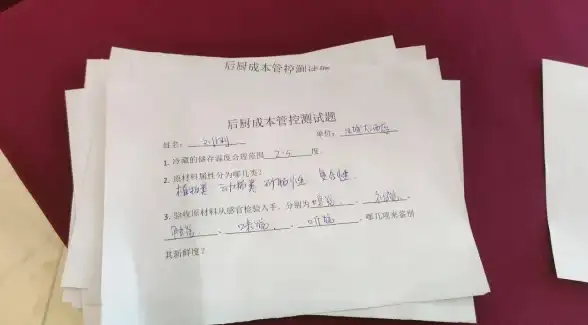 后厨成本管控测试
后厨成本管控测试题
姓名： 单位： 大酒店
1. 冷藏的储存温度合理范围 2-5 度。
2. 原材料属性分为哪几类？
植物类 动物类 矿物性 复合性
3. 验收原材料从感官检验入手，分别为 嗅觉 、
触觉 、 味觉 、 听觉 ，哪几项来鉴别
其新鲜度？